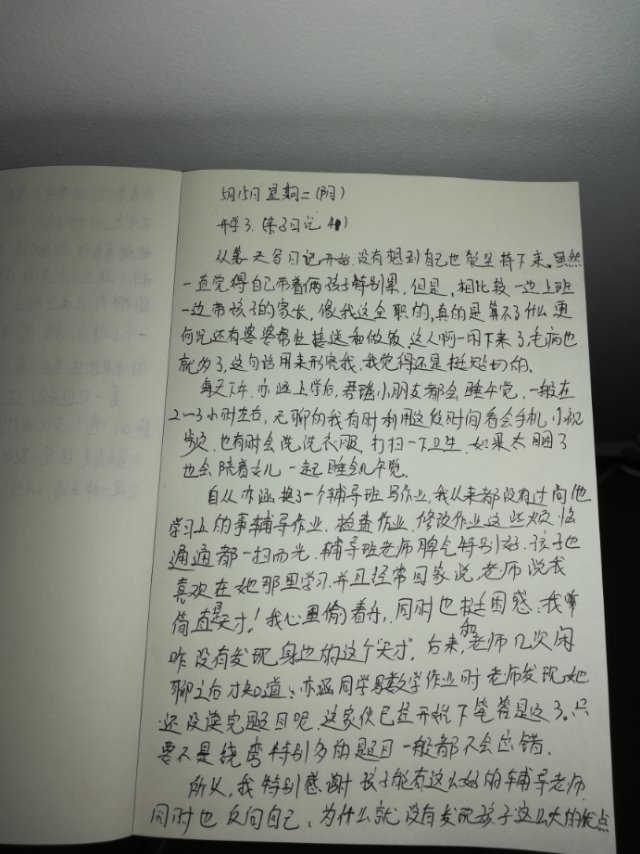 5月15日 星期二 (阴)
开学了. (亲子日记 41)
从第一天写日记开始, 没有想到自己也能坚持下来。虽然
一直觉得自己带着俩孩子特别累, 但是, 相比较一边上班
一边带孩子的家长, 像我这全职的, 真的是算不了什么, 更
何况还有婆婆帮忙接送和做饭, 这人啊一闲下来了毛病也
就多了, 这句话用来形容我, 我觉得还是挺贴切的。
每天下午, 亦涵上学后, 君瑶小朋友都会睡午觉, 一般在
2~3小时左右, 无聊的我有时利用这段时间看会手机, 小视
频, 也有时会洗洗衣服, 打扫一下卫生, 如果太困了
也会陪着女儿一起睡会儿午觉.
自从亦涵换了一个辅导班写作业, 我从来都没有过问他
学习上的事辅导作业. 检查作业. 修改作业这些烦恼
通通都一扫而光. 辅导班老师脾气特别好. 孩子也
喜欢在她那里学习, 并且经常回家说, 老师说我
简直是天才! 我心里偷着乐, 同时也挺困惑, 我咋
咋没有发现身边的这个"天才". 后来, 和老师几次闲
聊之后才知道: 亦涵同学写数学作业时 老师发现她
还没读完题目呢, 这家伙已经开始下笔答题了。只
要不是绕弯特别多的题目一般都不会出错.
所以, 我特别感谢孩子能有这么好的辅导老师
同时也反问自己、为什么就没有发现孩子这么大的优点